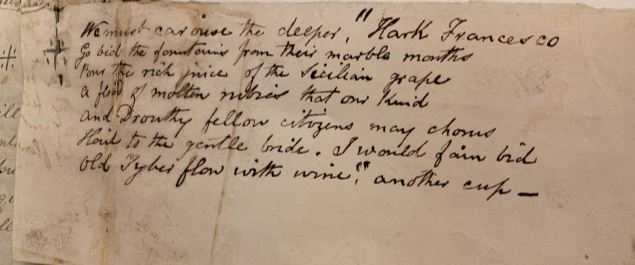 We must carouse the deeper, "Hark Francesco
Go bid the fountains from their marble mouths
Pour the rich juice of the Sicilian grape
a flood of molten rubies that our kind
and Drouthy fellow citizens may chorus
Hail to the gentle bride. I would fain bid
Old Tyber flow with wine," another cup —